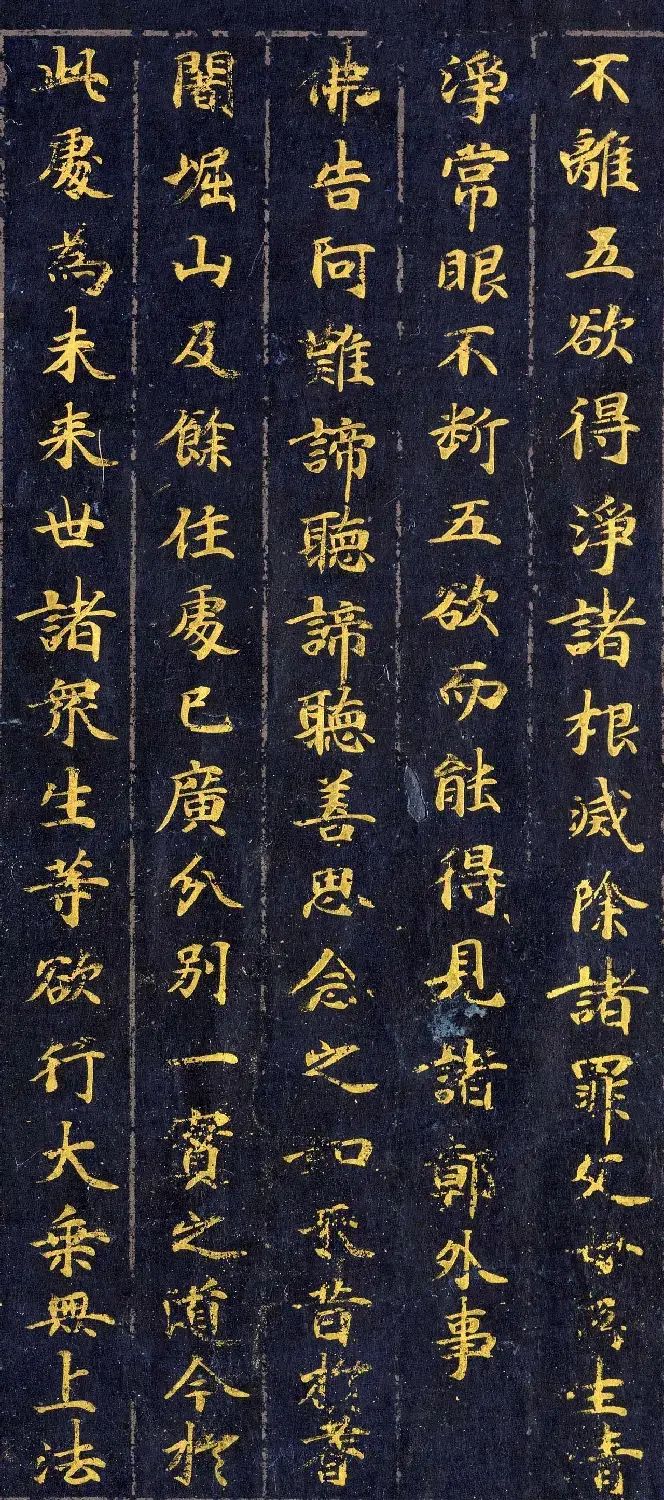 不離五欲得淨諸根滅除諸罪父母所生清
淨常眼不斷五欲而能得見諸鄣外事
佛告阿難諦聽諦聽善思念之如來昔於耆
闍堀山及餘住處已廣分別一實之道今於
此處為未來世諸衆生等欲行大乘無上法